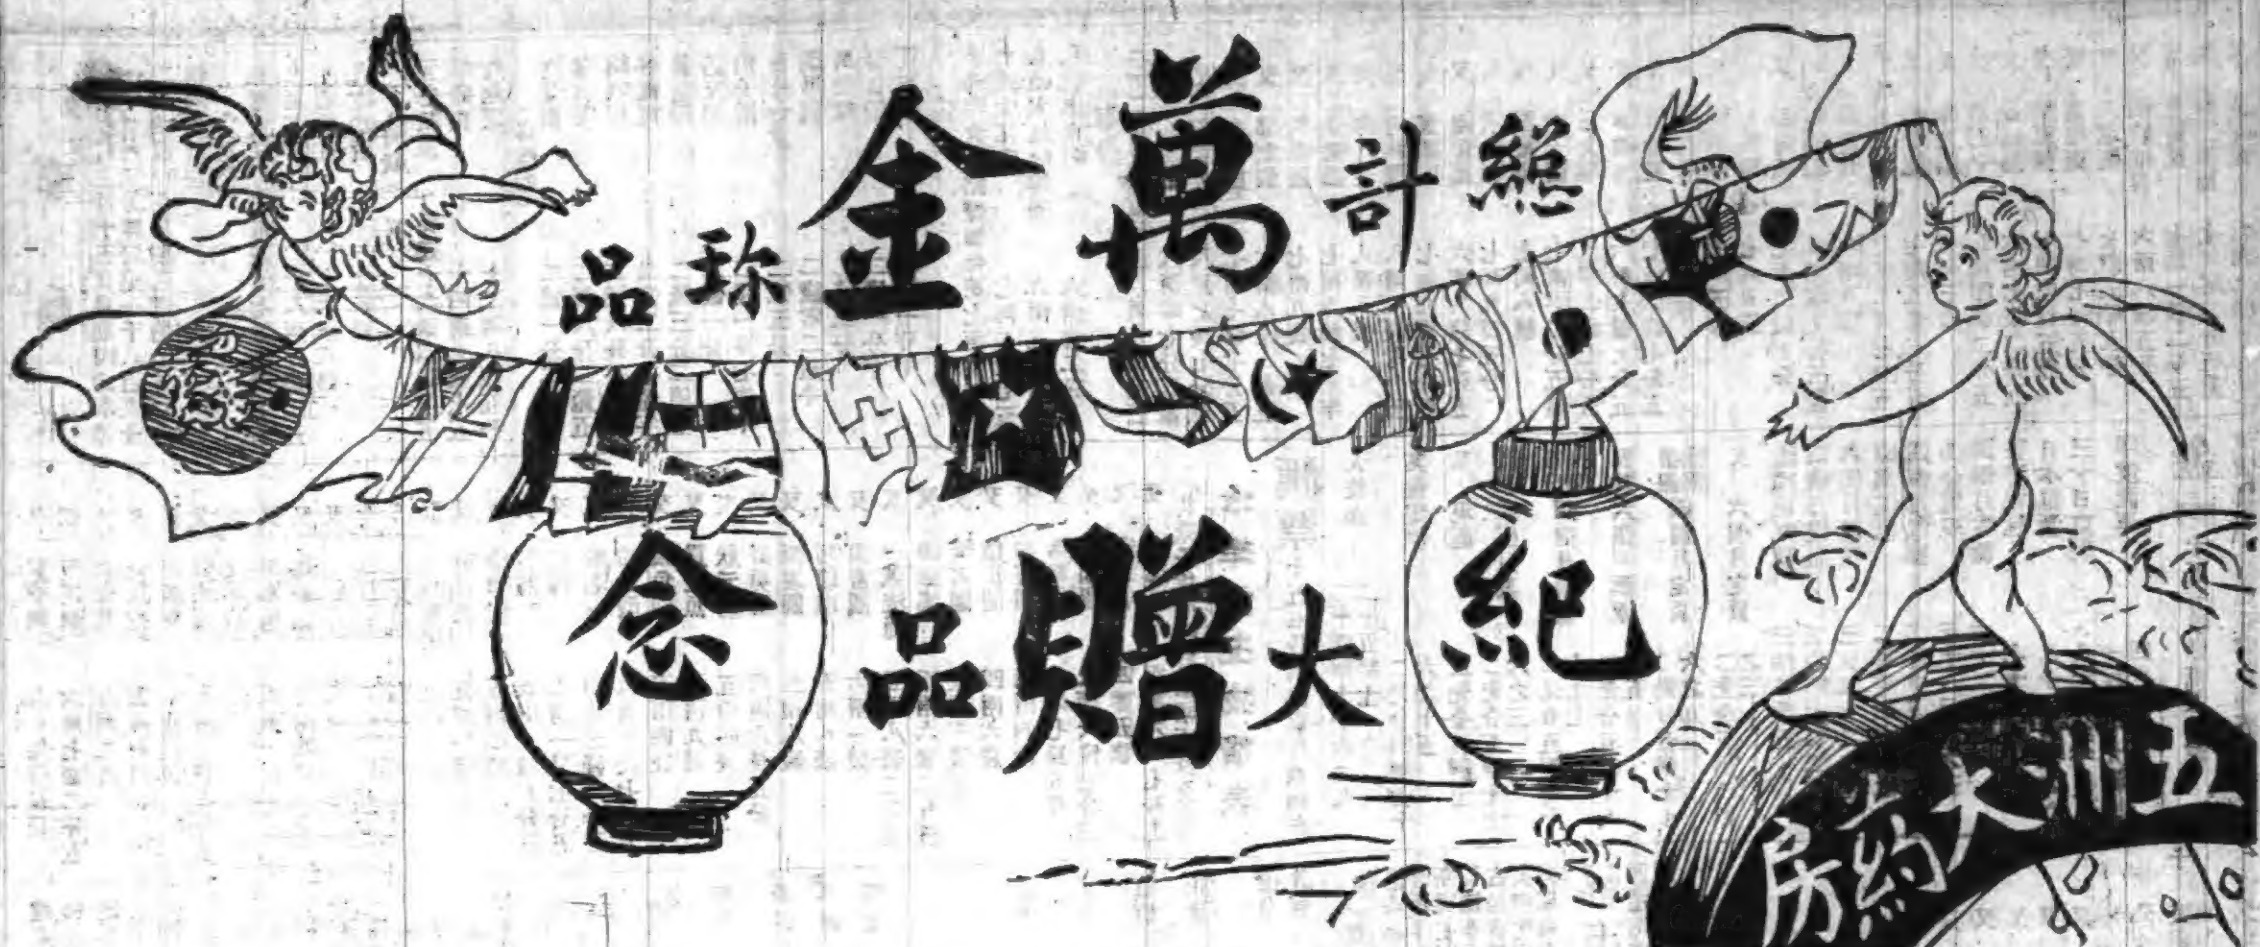 總計萬金珎品
紀念大贈品
五洲大药房